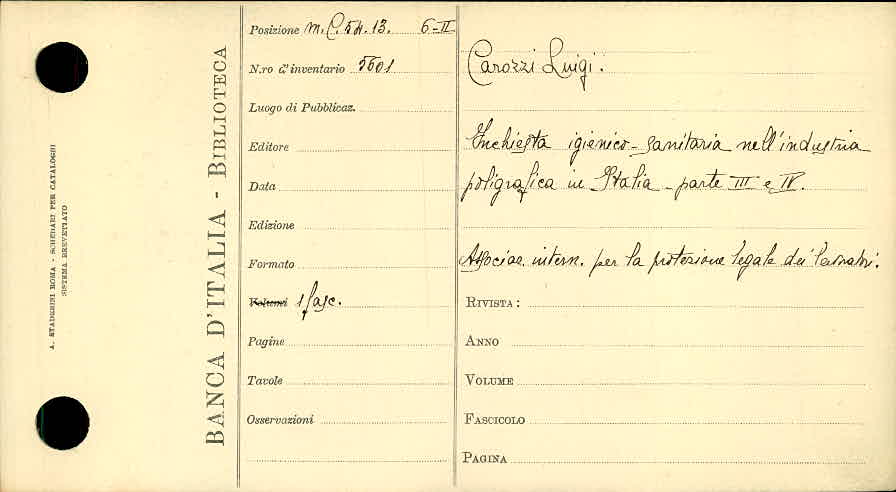 A. STADERINI ROMA - SCHEDARI PER CATALOGHI
SISTEMA BREVETTATO
BANCA D'ITALIA - BIBLIOTECA
Posizione m. C. 54. 13. 6-II
N.ro d'inventario 5601
Luogo di Pubblicaz.
Editore
Data
Edizione
Formato
Volumi 1 fasc.
Pagine
Tavole
Osservazioni
Carozzi Luigi.
Inchiesta igienico-sanitaria nell'industria
poligrafica in Italia - parte III e IV.
Associaz. intern. per la protezione legale dei lavoratori.
RIVISTA:
ANNO
VOLUME
FASCICOLO
PAGINA